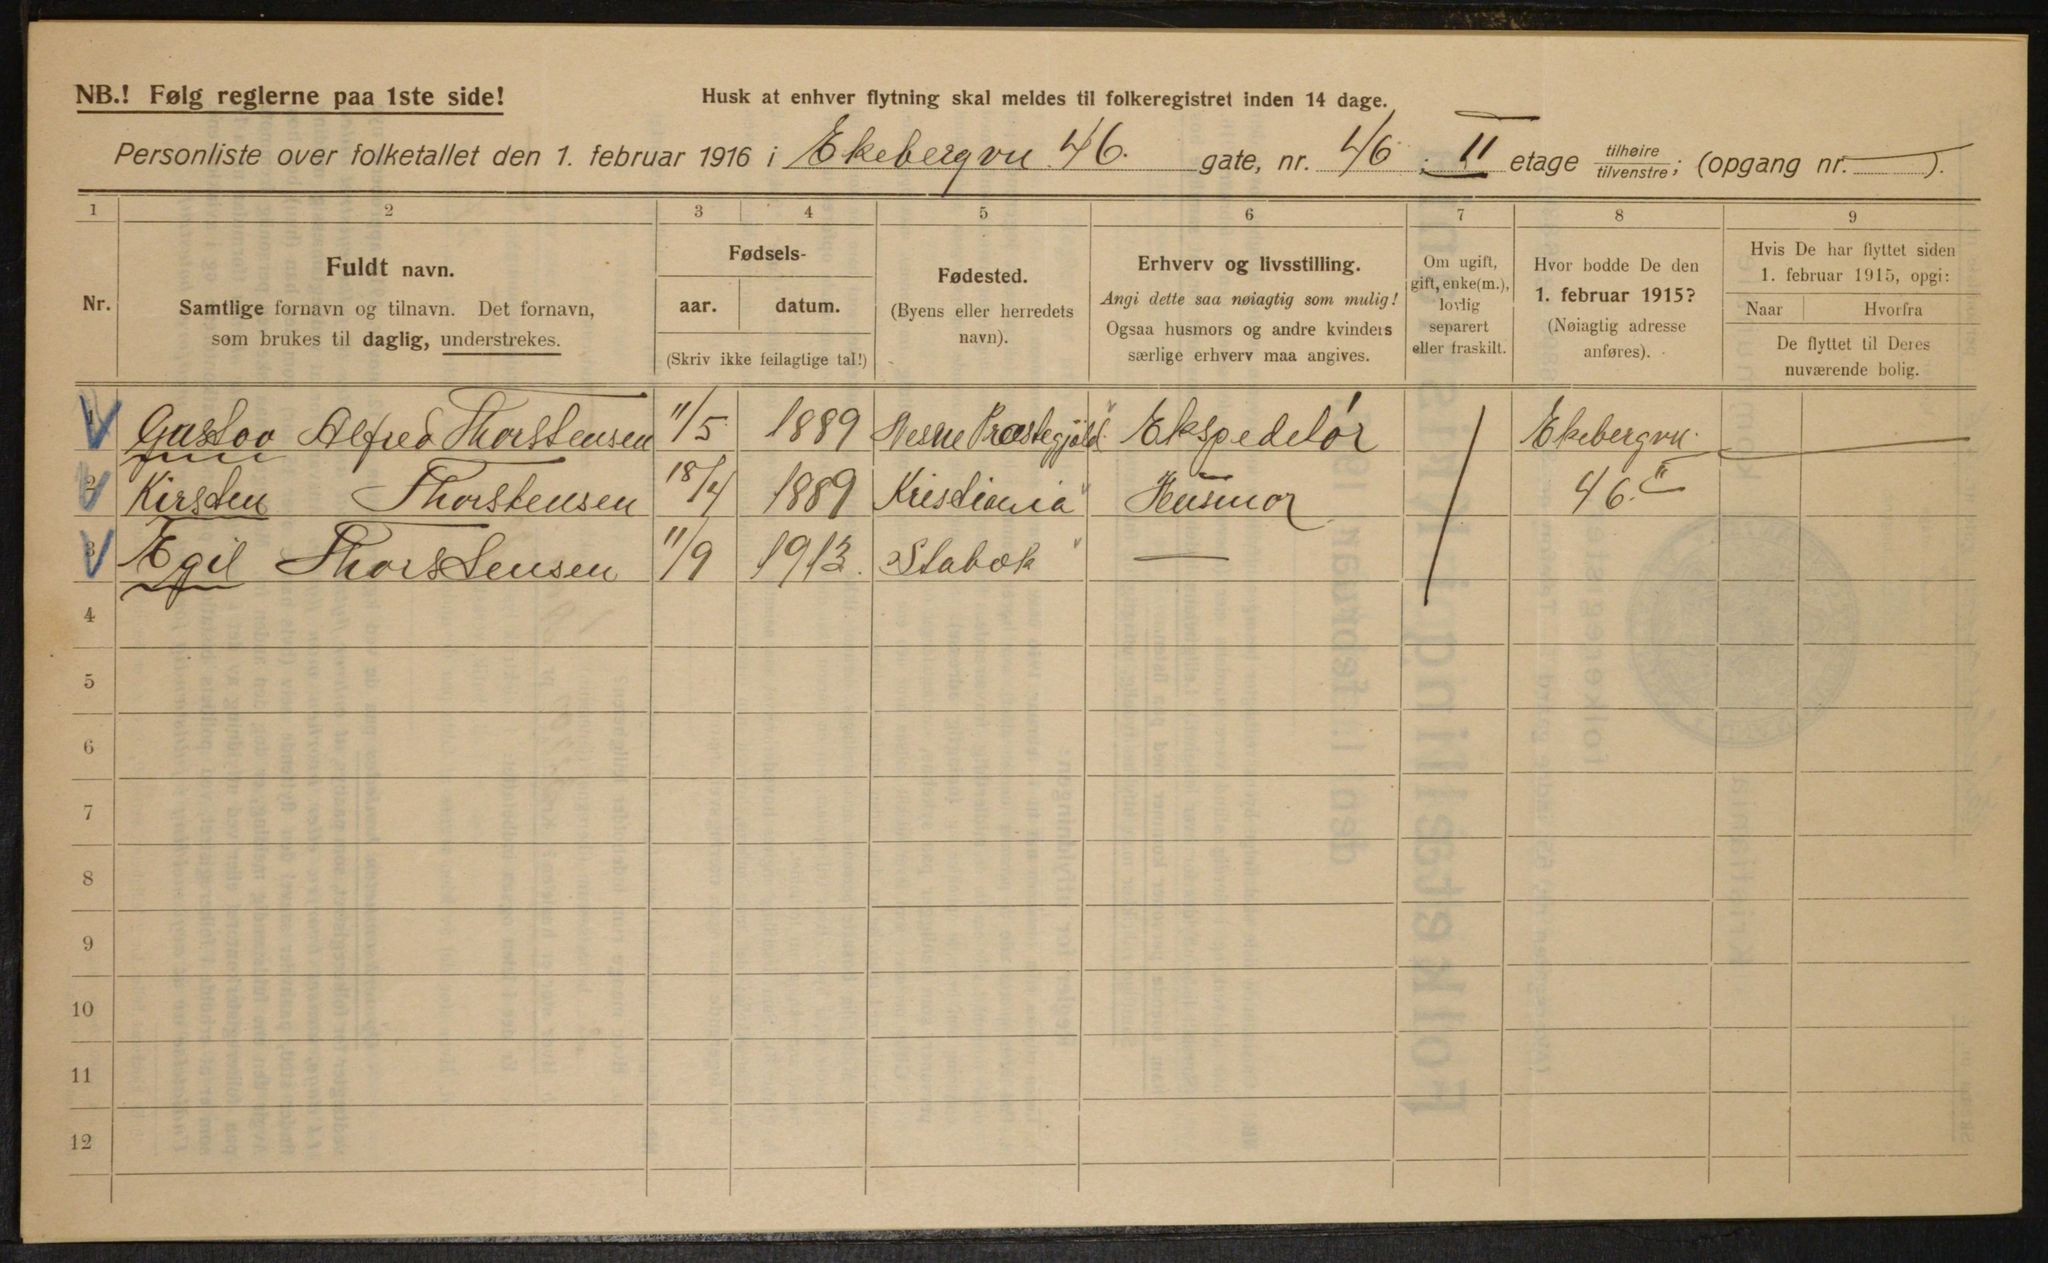 NB.! Følg reglerne paa 1ste side!
Husk at enhver flytning skal meldes til folkeregistret inden 14 dage.
Personliste over folketallet den 1. februar 1916 i Ekebergvn 46. gate, nr. 46; II etage tilhøire/tilvenstre; (opgang nr. —).
1 2 3 4 5 6 7 8 9
Nr.
Fuldt navn.
Samtlige fornavn og tilnavn. Det fornavn,
som brukes til daglig, understrekes.
Fødsels-
aar. datum.
(Skriv ikke feilagtige tal!)
Fødested.
(Byens eller herredets
navn).
Erhverv og livsstilling.
Angi dette saa nøiagtig som mulig!
Ogsaa husmors og andre kvinders
særlige erhverv maa angives.
Om ugift,
gift, enke(m.),
lovlig
separert
eller fraskilt.
Hvor bodde De den
1. februar 1915?
(Nøiagtig adresse
anføres).
Hvis De har flyttet siden
1. februar 1915, opgi:
Naar Hvorfra
De flyttet til Deres
nuværende bolig.
1 Gustav Alfred Thorstensen 11/5 1889 Nesne Præstegjæld Ekspeditør / Ekebergvn.
2 Kirsten Thorstensen 18/4 1889 Kristiania Husmor 46. II
3 Egil Thorstensen 11/9 1913. Stabæk —
4
5
6
7
8
9
10
11
12